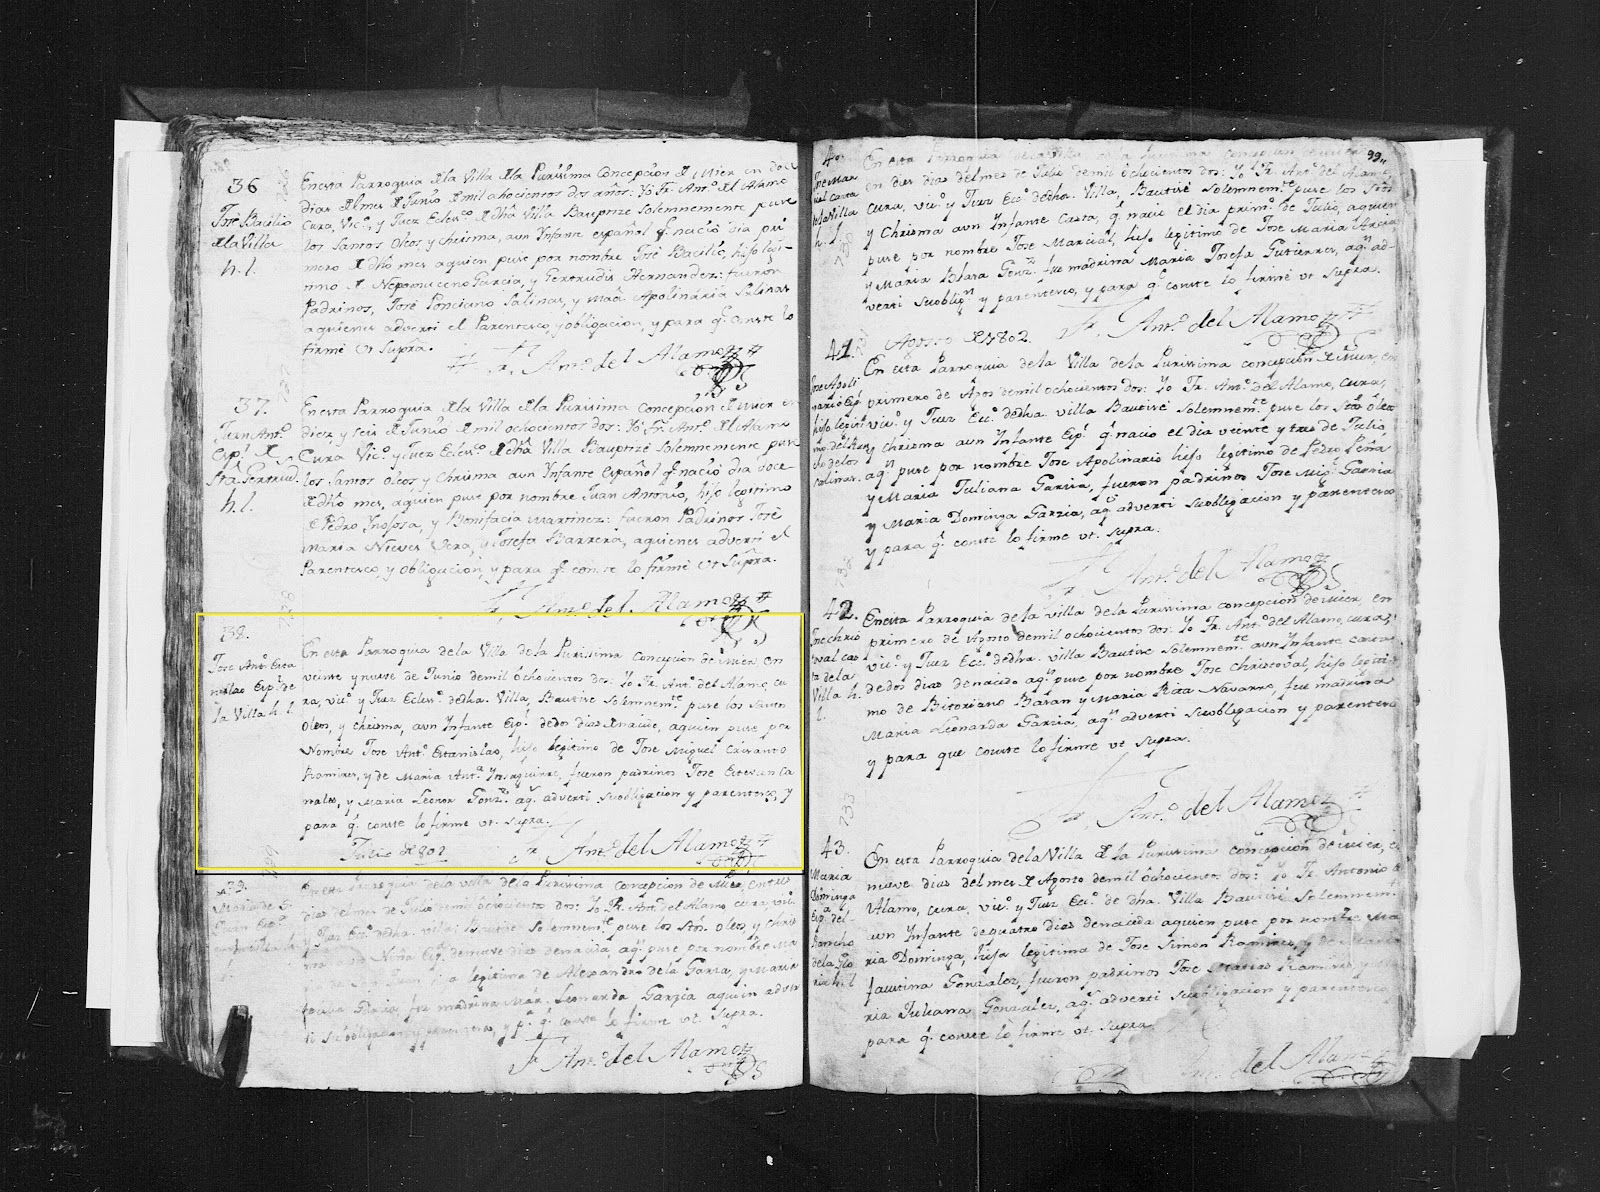 36
Jose Bacilio
de la Villa
h. l.
En esta Parroquia de la Villa de la Purisima Concepcion de Mier en doce
dias del mes de Junio de mil ochocientos dos años: Yo Fr. Antº. del Alamo
Cura, Vicº. y Juez Eclesº. de dha Villa Bauptize Solemnemente puse
los Santos oleos y chrisma, a un Ynfante español q.e nació dia pri
mero de dho mes aquien puse por nombre José Bacilio, hijo legi-
timo de Nepomuceno Garcia, y Gertrudis Hernandez: fueron
Padrinos, José Ponciano Salinas, y Maa. Apolinaria Salinas
aquienes adverti el Parentesco, y obligacion, y para q.e conste lo
firmé Ut Supra.
Fr. Antº. del Alamo
37.
Juan Antº.
Espl. de
Sta Gertrud.s
h. l.
En esta Parroquia de la Villa de la Purisima Concepcion de Mier en
diez y seis de Junio de mil ochocientos dos: Yo Fr. Antº. del Alamo
Cura Vicº. y Juez Eclesº. de dha Villa Bauptizé Solemnemente puse
los Santos oleos y Chrisma a un Ynfante Español q.e nació dia doce
de dho mes, aquien puse por nombre Juan Antonio, hijo legitimo
de Pedro Ynojosa, y Bonifacia Martinez: fueron Padrinos José
Maria Nieves Vera, y Josefa Barrera, aquienes adverti el
Parentesco y obligacion, y para q.e conste lo firmé Ut Supra.
Fr. Antº. del Alamo
38.
Jose Antº. Esta
nislao Espl. de
la Villa h. l.
En esta Parroquia de la Villa de la Purissima Concepcion de Mier, en
veinte y nueve de Junio de mil ochocientos dos: Yo Fr. Antº. del Alamo, cu
ra, vicº. y Juez Eclesº. de dha. Villa, Bautise Solemnemte. puse los Santos
oleos, y Chrisma, a un Ynfante Espl. de dos dias de nacido, aquien puse por
Nombre Jose Antº. Estanislao, hijo legitimo de Jose Miguel Crisanto
Ramires, y de Maria Anta. Yrreguirre, fueron padrinos Jose Estevan Ca
nales, y Maria Leonor Gonzs. aqs. adverti su obligacion y parentesco, y
para q.e conste lo firme ut. supra.
Julio de 802
Fr. Antº. del Alamo
39.
Maria de S.
Juan Espa.
En esta Parroquia de la Villa de la Purissima Concepcion de Mier, en tres
dias del mes de Julio de mil ochocientos dos: Yo Fr. Antº. del Alamo cura, vicº.
y Juez Eccº. de dha. villa Bautise Solemnemte. puse los Stos. oleos, y Chris
ma a una Niña Espa. de nueve dias de nacida, aqn. puse por nombre Ma
ria de San Juan, hija legitima de Alexandro de la Garza, y Maria
Garcia, fue madrina Mar. Leonarda Garzia aquien adver
ti su obligacion y parentesco, y pa. q.e conste lo firme ut. Supra.
Fr. Antº. del Alamo
99
40
Jose Mar
cial casta
de la Villa
h. l.
En esta Parroquia de la Villa de la Purissima Concepcion de Mier
en dies dias del mes de Julio de mil ochocientos dos: Yo Fr. Antº. del Alamo,
cura, vicº. y Juez Eccº. de dha. Villa, Bautise Solemnemte. puse los Stos
y Chrisma a un Infante Casta, q.e nacio el dia primº. de Julio, aquien
puse por nombre Jose Marcial, hijo legitimo de Jose Maria Garcia
y Maria Blasa Gonz. fue madrina Maria Josefa Gutierres, aqn. ad-
verti su obligon. y parentesco, y para q.e conste lo firmé ut Supra.
Fr. Antº. del Alamo
Agosto de 1802.
41.
Jose Apoli
nario Esp.
hijo legiti
mo del Ran
cho de los
Salinas.
En esta Parroquia de la Villa de la Purissima concepcion de Mier, en
primero de Agos de mil ochocientos dos: Yo Fr. Antº. del Alamo, cura,
vicº. y Juez Eccº. de dha. villa Bautisé Solemnemte. puse los Stos oleos
y chrisma a un Infante Espl. q.e nacio el dia veinte y tres de Julio,
aqn. puse por nombre Jose Apolinario hijo legitimo de Pedro Peña
y Maria Juliana Garzia, fueron padrinos Jose Migl. Garcia
y Maria Dominga Garzia, aqs. adverti su obligacion y parentesco
y para q.e conste lo firme ut. supra.
Fr. Antº. del Alamo
42.
Jose Chris
toval cas
ta de la
Villa h.
l.
En esta Parroquia de la villa de la Purissima concepcion de Mier, en
primero de Agosto de mil ochocientos dos: Yo Fr. Antº. del Alamo, cura,
vicº. y Juez Eccº. de dha. villa Bautise Solemnemte. a un Infante casta
de dos dias de nacido aqn. puse por nombre Jose Christoval, hijo legiti
mo de Bitoriano Basan y Maria Rita Navarro, fue madrina
Maria Leonarda Garzia, aqn. adverti su obligacion y parentesco
y para que conste lo firme ut supra.
Fr. Antº. del Alamo
43.
Maria
Dominga
Espa. del
Rancho
de la Glo
ria h. l.
En esta Parroquia de la Villa de la Purissima Concepcion de Mier, en
nueve dias del mes de Agosto de mil ochocientos dos: Yo Fr. Antonio del
Alamo, cura, vicº. y Juez Eccº. de dha. Villa Bautisé Solemnemte.
a un Infante de quatro dias de nacida aquien puse por nombre Ma
ria Dominga, hija legitima de Jose Simon Ramires, y de Maria
Faustina Gonzalez, fueron padrinos Jose Matias Ramires, y Ma
ria Juliana Gonzalez, aqs. adverti su obligacion y parentesco,
para q.e conste lo firme ut supra.
Fr. Antº. del Alamo